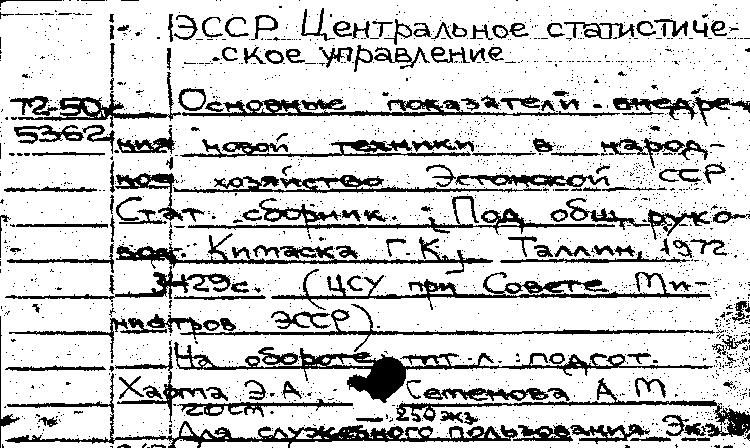 ЭССР Центральное статистиче-
ское управление
72-50к Основные показатели внедре-
5362 ния новой техники в народ-
ное хозяйство Эстонской ССР.
Стат. сборник. [Под общ. руко-
вод. Китаска Г.К.] Таллин, 1972
429с. (ЦСУ при Совете Ми-
нистров ЭССР).
На обороте тит. л.: подгот.
Харта Э.А Семенова А М
250 экз.
Для служебного пользования. Экз.